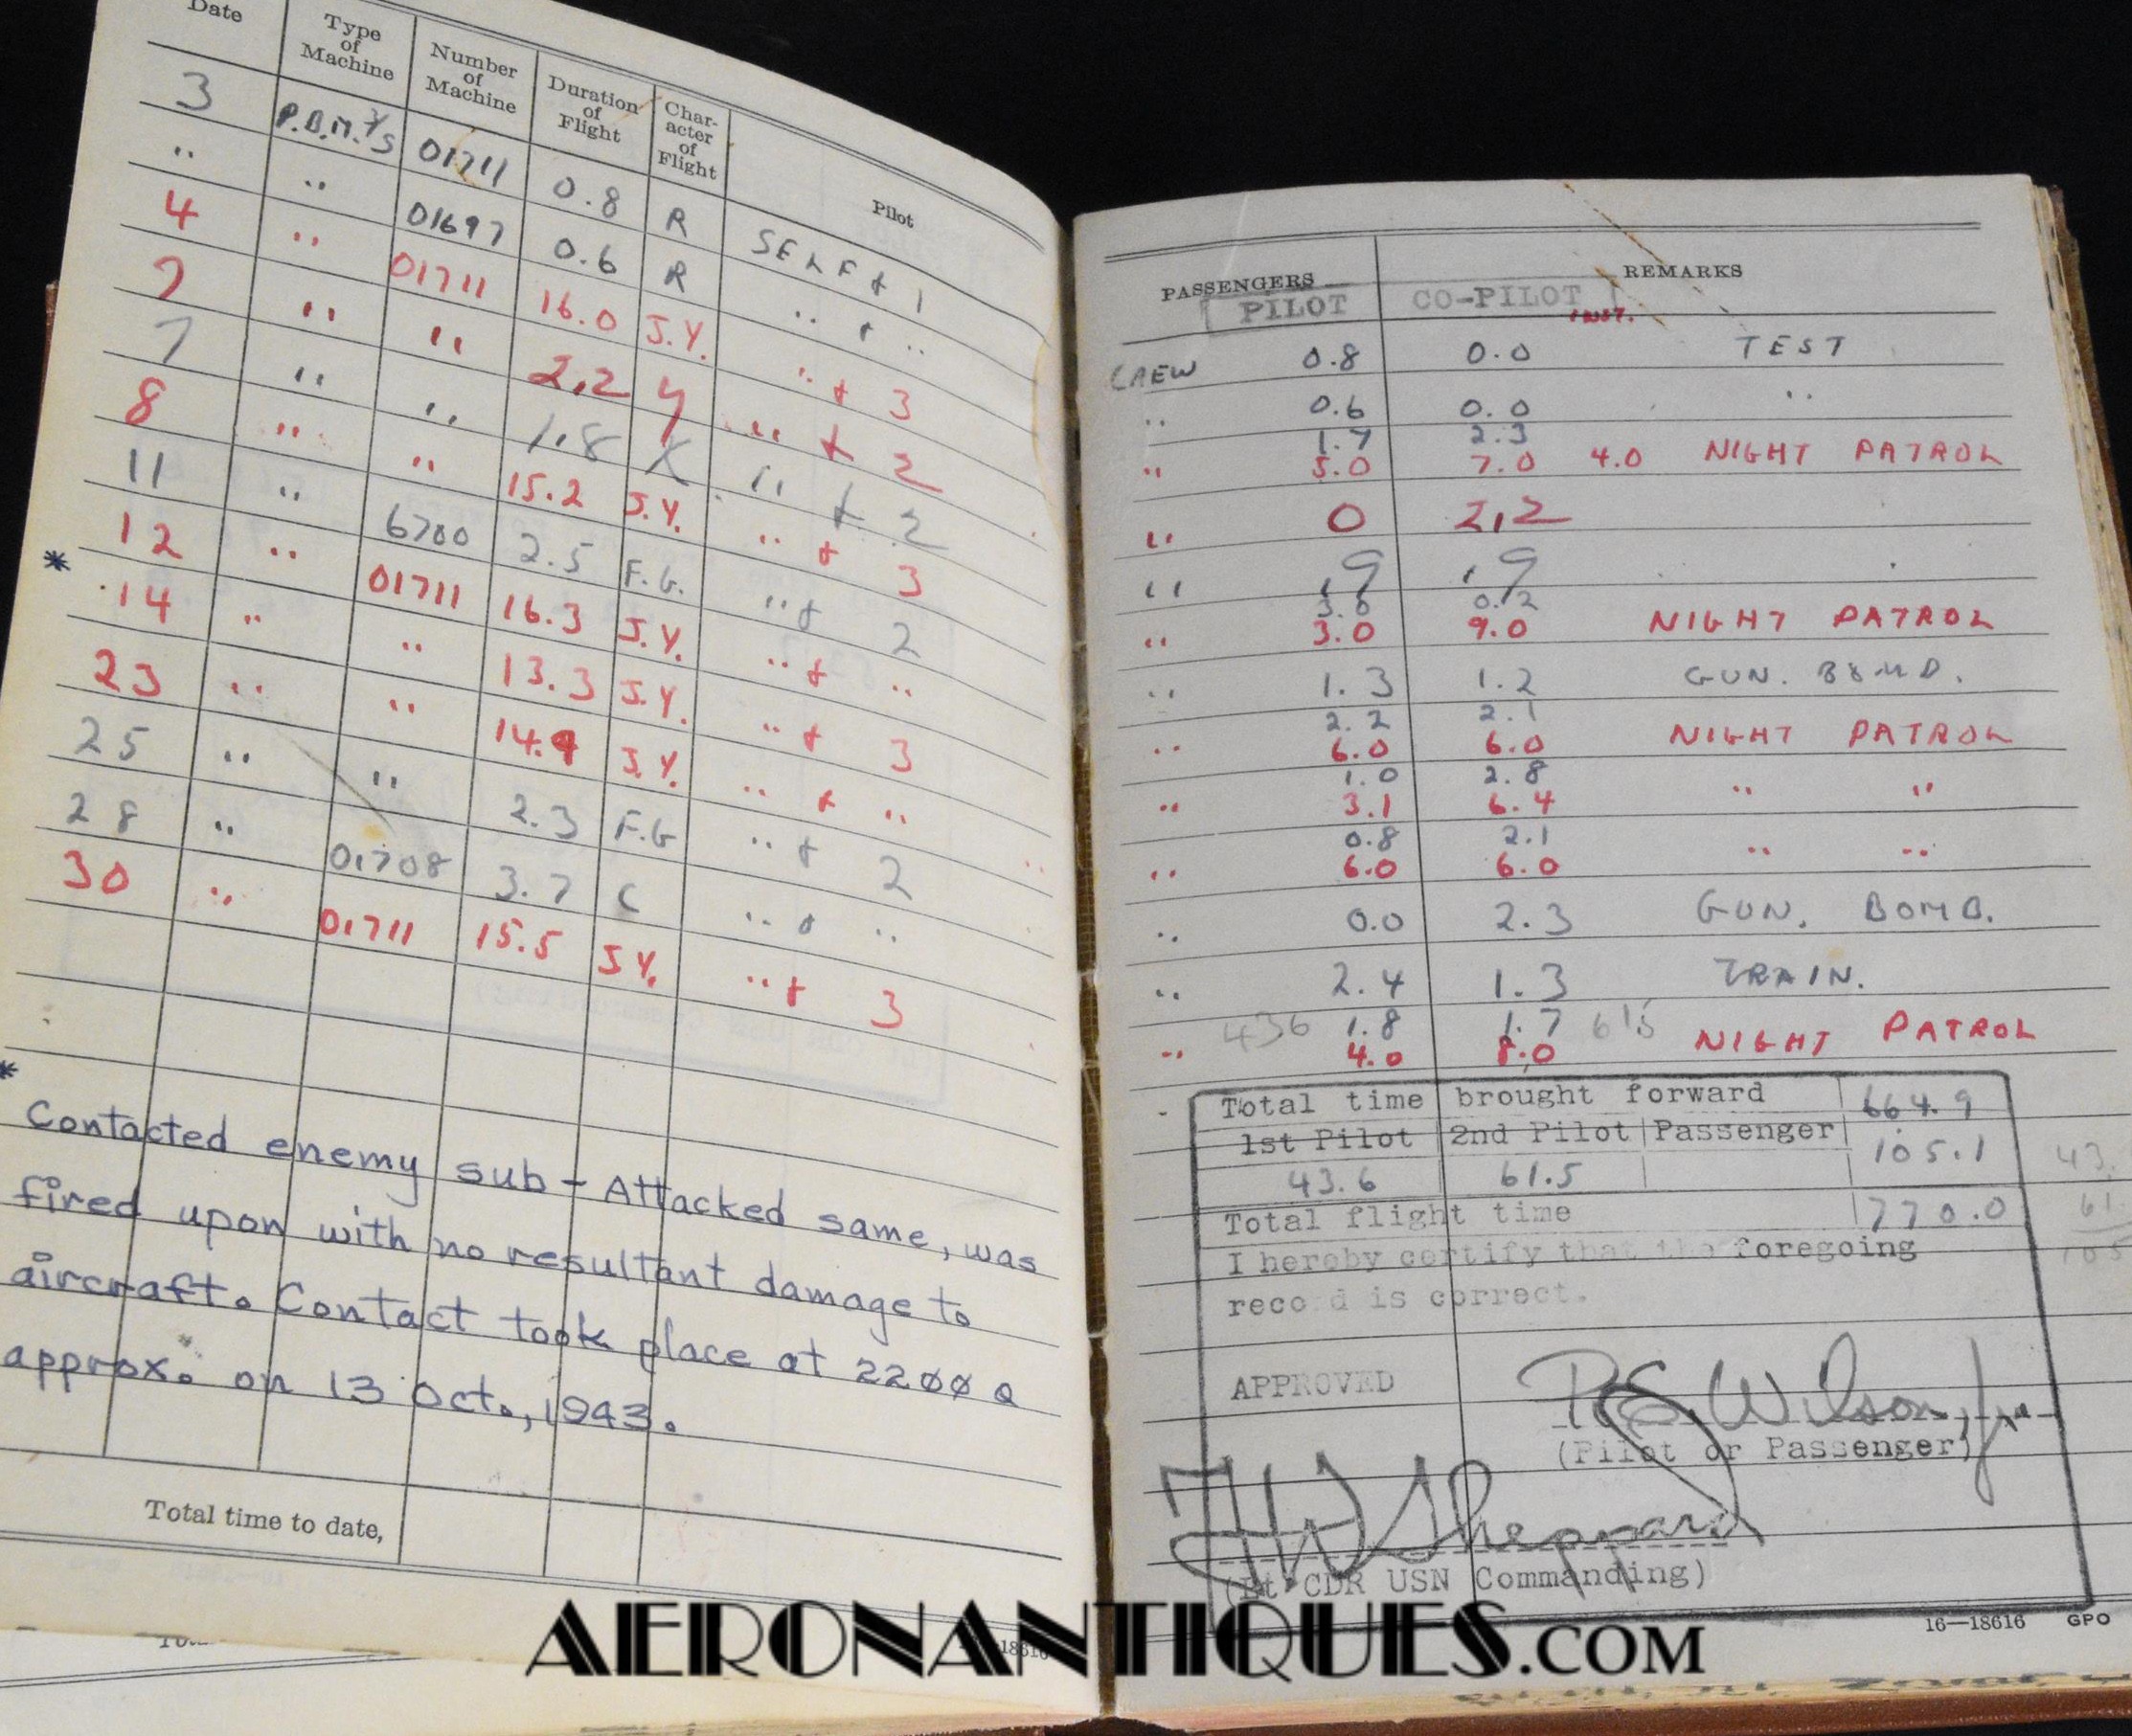 Date Type of Machine Number of Machine Duration of Flight Character of Flight Pilot
3 P.B.M. 3/S 01711 0.8 R SELF + 1
" " 01697 0.6 R " + "
4 " 01711 16.0 J.Y. " + 3
7 " " 2.2 Y " + 2
7 " " 1.8 X " + 2
8 " " 15.2 J.Y. " + 3
11 " 6700 2.5 F.G. " + 2
12 " 01711 16.3 J.Y. " + "
* 14 " " 13.3 J.Y. " + 3
23 " " 14.9 J.Y. " + "
25 " " 2.3 F.G " + 2
28 " 01708 3.7 C " + "
30 " 01711 15.5 J.Y. " + 3
*
Contacted enemy sub - Attacked same, was
fired upon with no resultant damage to
aircraft. Contact took place at 2200 Q
approx. on 13 Oct., 1943.
Total time to date,
PASSENGERS REMARKS
PILOT CO-PILOT INST.
CREW 0.8 0.0 TEST
" 0.6 0.0 "
1.7 2.3
" 5.0 7.0 4.0 NIGHT PATROL
" 0 2.2
" .9 .9
3.0 0.2
" 3.0 9.0 NIGHT PATROL
" 1.3 1.2 GUN. BOMB.
2.2 2.1
" 6.0 6.0 NIGHT PATROL
1.0 2.8
" 3.1 6.4 " "
0.8 2.1
" 6.0 6.0 " "
" 0.0 2.3 GUN. BOMB.
" 2.4 1.3 TRAIN.
436 1.8 1.7 615
" 4.0 8.0 NIGHT PATROL
Total time brought forward 664.9
1st Pilot 2nd Pilot Passenger 105.1
43.6 61.5
Total flight time 770.0
43.
61.
105
I hereby certify that the foregoing
record is correct.
APPROVED R.S. Wilson, Jr.
(Pilot or Passenger)
HW Sheppard
(Lt CDR USN Commanding)
16—18616 GPO
AERONANTIQUES.COM